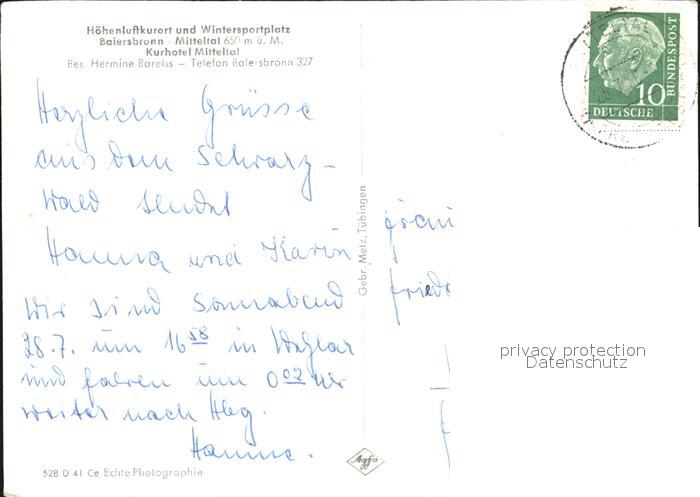 Höhenluftkurort und Wintersportplatz
Baiersbronn - Mitteltal 650 m ü. M.
Kurhotel Mitteltal
Bes. Hermine Bareiss – Telefon Baiersbronn 327
Herzliche Grüsse
aus dem Schwarz-
wald sendet
Hanna und Karin
Wir sind Sonnabend
28.7. um 16 58 in Wetzlar
und fahren um 0 02 Uhr
weiter nach Hbg.
Hanna.
528 D 41 Ce Echte Photographie
Gebr. Metz, Tübingen
Agfa
10
DEUTSCHE
BUNDESPOST
privacy protection
Datenschutz